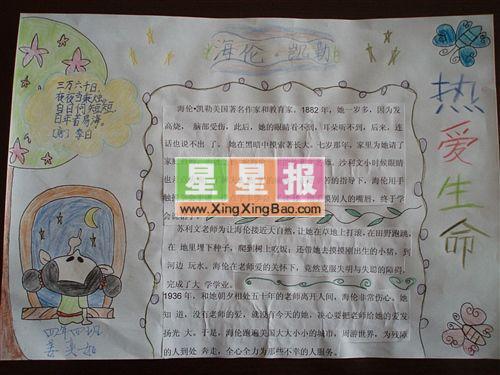 海伦·凯勒
热爱生命
三万六千日
夜夜当秉烛
百年
李白
海伦·凯勒美国著名作家和教育家。1882年，她一岁多，因为发
高烧，脑部受伤，此后，她的眼睛看不到，耳朵听不到，后来，连
话也说不出了。她在黑暗中摸索着长大。七岁那年，家里为她请了
沙利文小时候眼睛
的指导下，海伦用手
摸别人的嘴唇，终于学
星星报
www.XingXingBao.com
苏利文老师为让海伦接近大自然，让她在草地上打滚，在田野跑跳，
在 地里埋下种子，爬到树上吃饭；还带她去摸摸刚出生的小猪，到
河边 玩水。海伦在老师爱的关怀下，竟然克服失明与失聪的障碍，
完成了大 学学业。
1936年，和她朝夕相处五十年的老师离开人间，海伦非常伤心。她
知 道，没有老师的爱，就没有今天的她，决心要把老师给她的爱发
扬光 大。于是，海伦跑遍美国大大小小的城市，周游世界，为残障
的人到处 奔走，全心全力为那些不幸的人服务。
四年四班